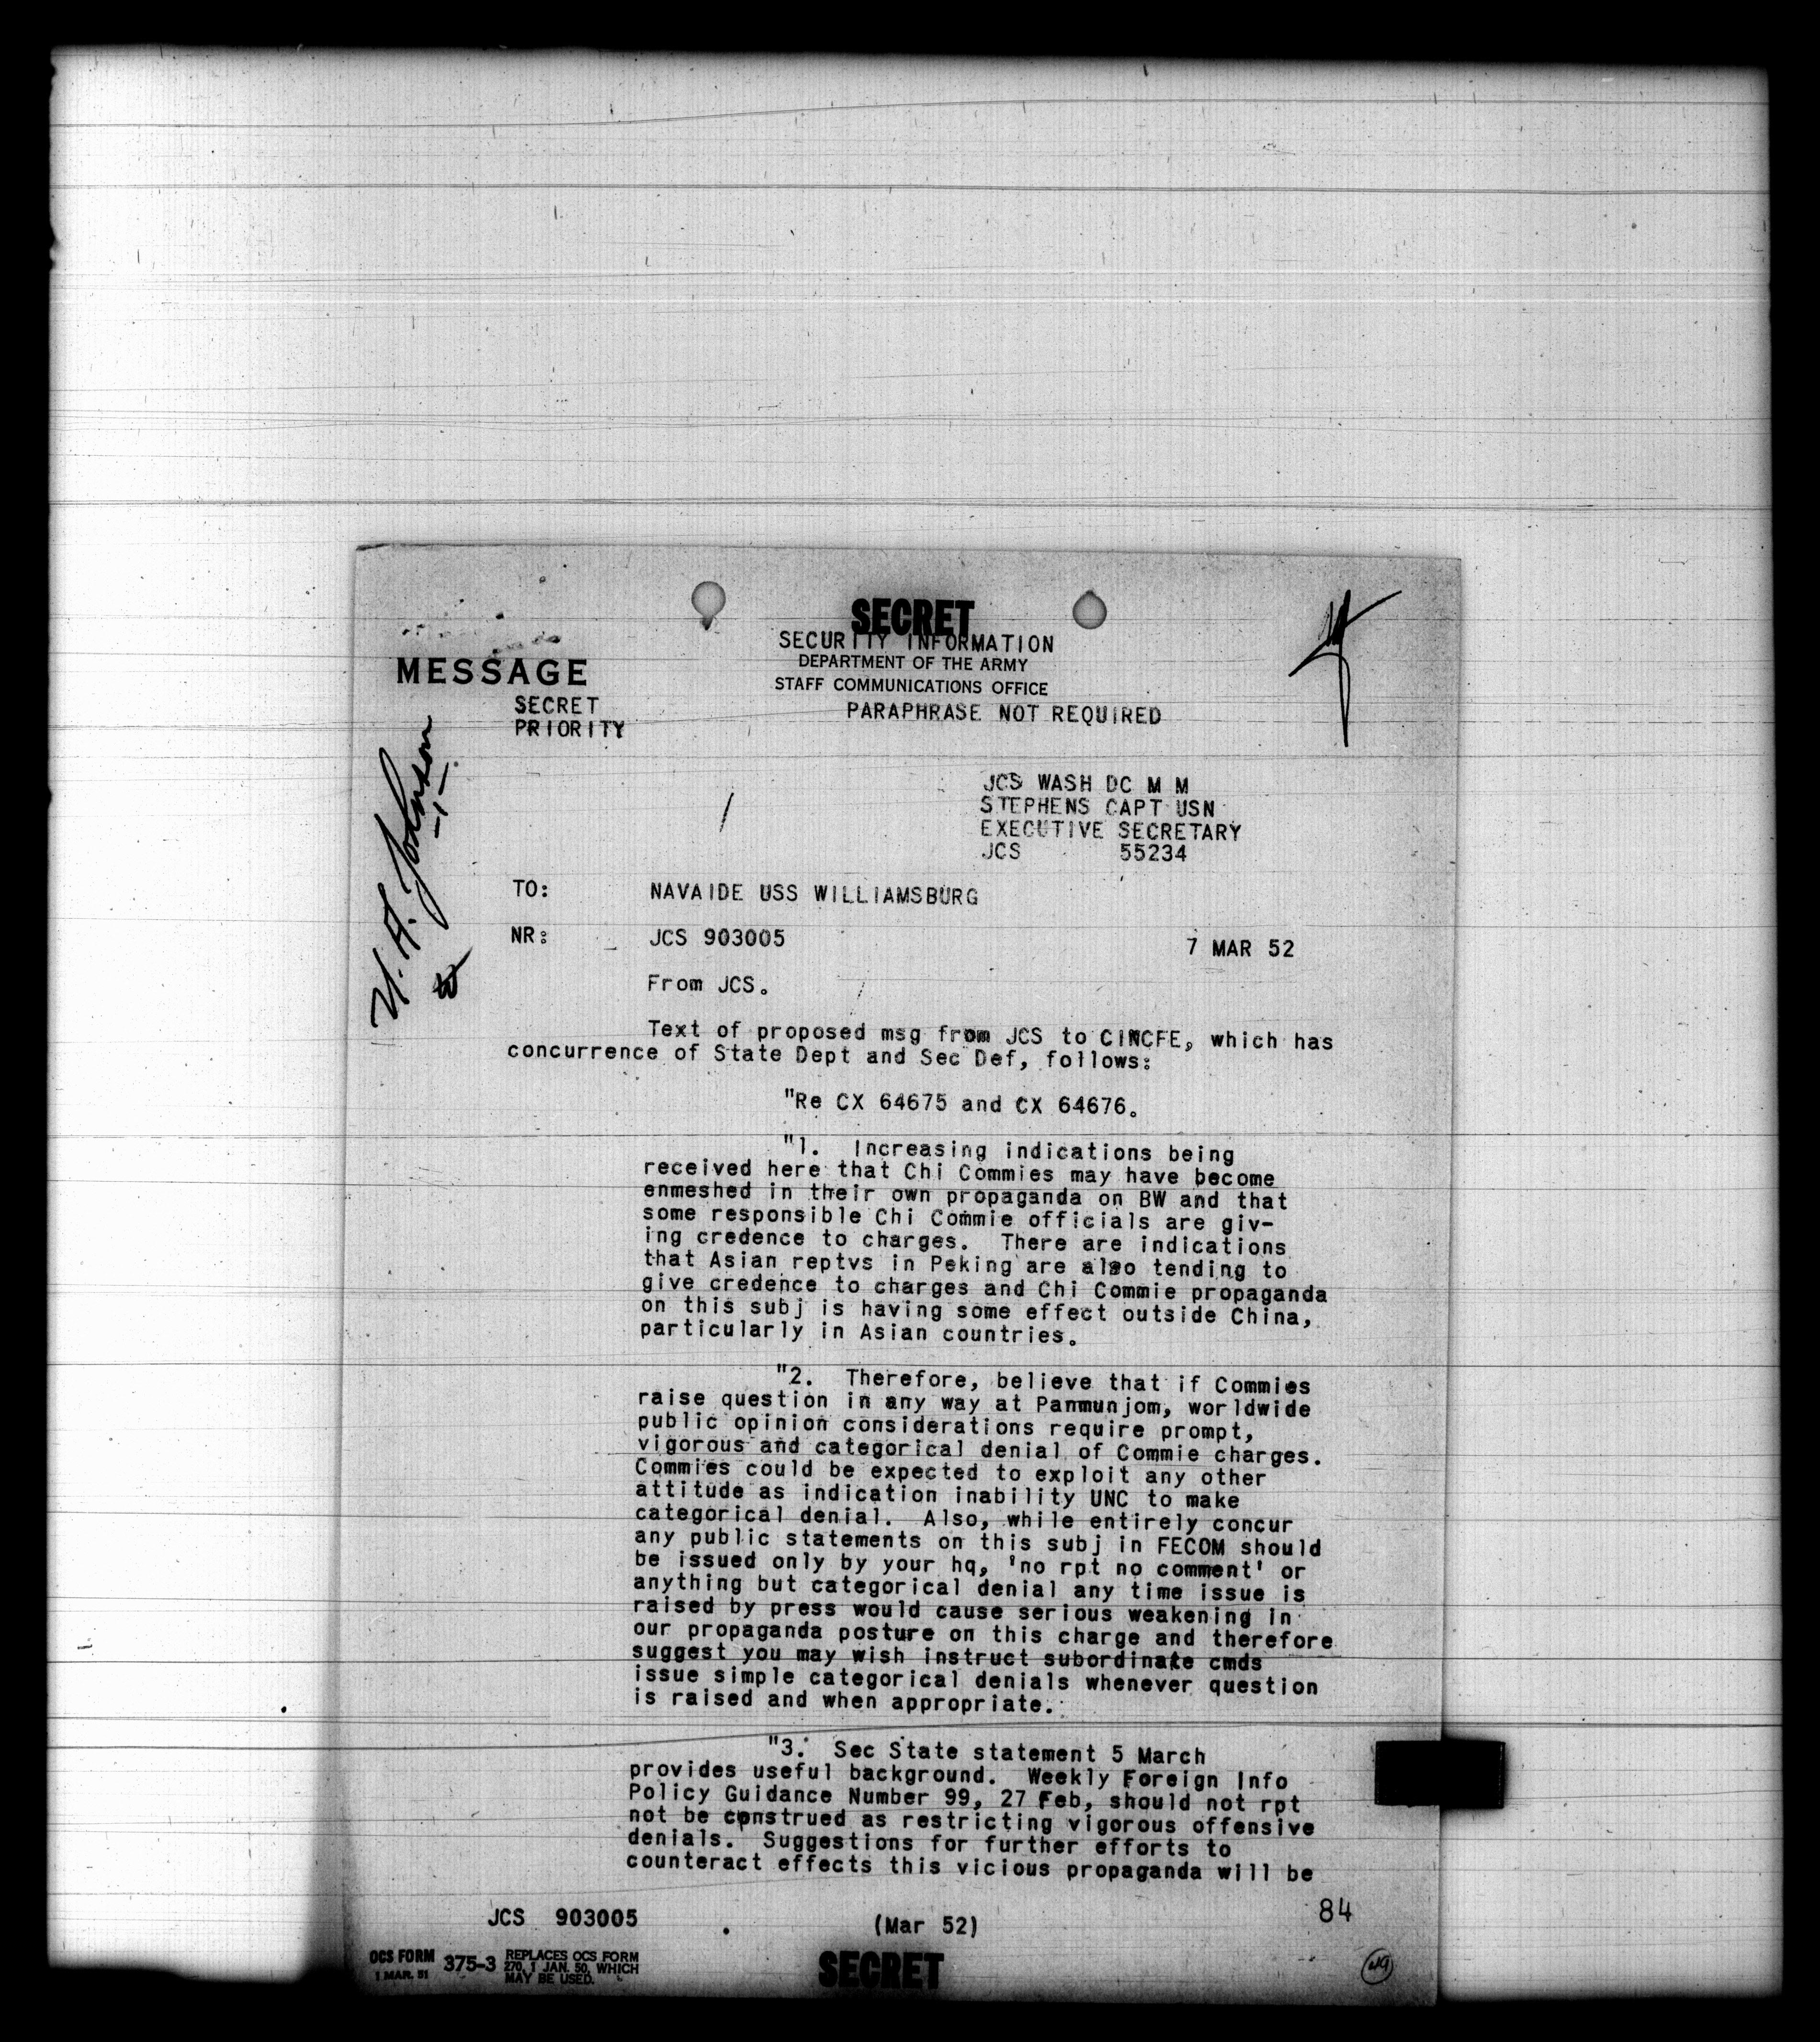 SECRET
SECURITY INFORMATION
DEPARTMENT OF THE ARMY
STAFF COMMUNICATIONS OFFICE
MESSAGE
SECRET
PRIORITY
PARAPHRASE NOT REQUIRED
U. A. Johnson
JCS WASH DC M M
STEPHENS CAPT USN
EXECUTIVE SECRETARY
JCS 55234
TO: NAVAIDE USS WILLIAMSBURG
NR: JCS 903005 7 MAR 52
From JCS.
Text of proposed msg from JCS to CINCFE, which has
concurrence of State Dept and Sec Def, follows:
"Re CX 64675 and CX 64676.
"1. Increasing indications being
received here that Chi Commies may have become
enmeshed in their own propaganda on BW and that
some responsible Chi Commie officials are giv-
ing credence to charges. There are indications
that Asian reptvs in Peking are also tending to
give credence to charges and Chi Commie propaganda
on this subj is having some effect outside China,
particularly in Asian countries.
"2. Therefore, believe that if Commies
raise question in any way at Panmunjom, worldwide
public opinion considerations require prompt,
vigorous and categorical denial of Commie charges.
Commies could be expected to exploit any other
attitude as indication inability UNC to make
categorical denial. Also, while entirely concur
any public statements on this subj in FECOM should
be issued only by your hq, 'no rpt no comment' or
anything but categorical denial any time issue is
raised by press would cause serious weakening in
our propaganda posture on this charge and therefore
suggest you may wish instruct subordinate cmds
issue simple categorical denials whenever question
is raised and when appropriate.
"3. Sec State statement 5 March
provides useful background. Weekly Foreign Info
Policy Guidance Number 99, 27 Feb, should not rpt
not be construed as restricting vigorous offensive
denials. Suggestions for further efforts to
counteract effects this vicious propaganda will be
84
JCS 903005 (Mar 52)
OCS FORM 375-3 REPLACES OCS FORM
1 MAR. 51 270, 1 JAN. 50, WHICH
MAY BE USED.
SECRET
49